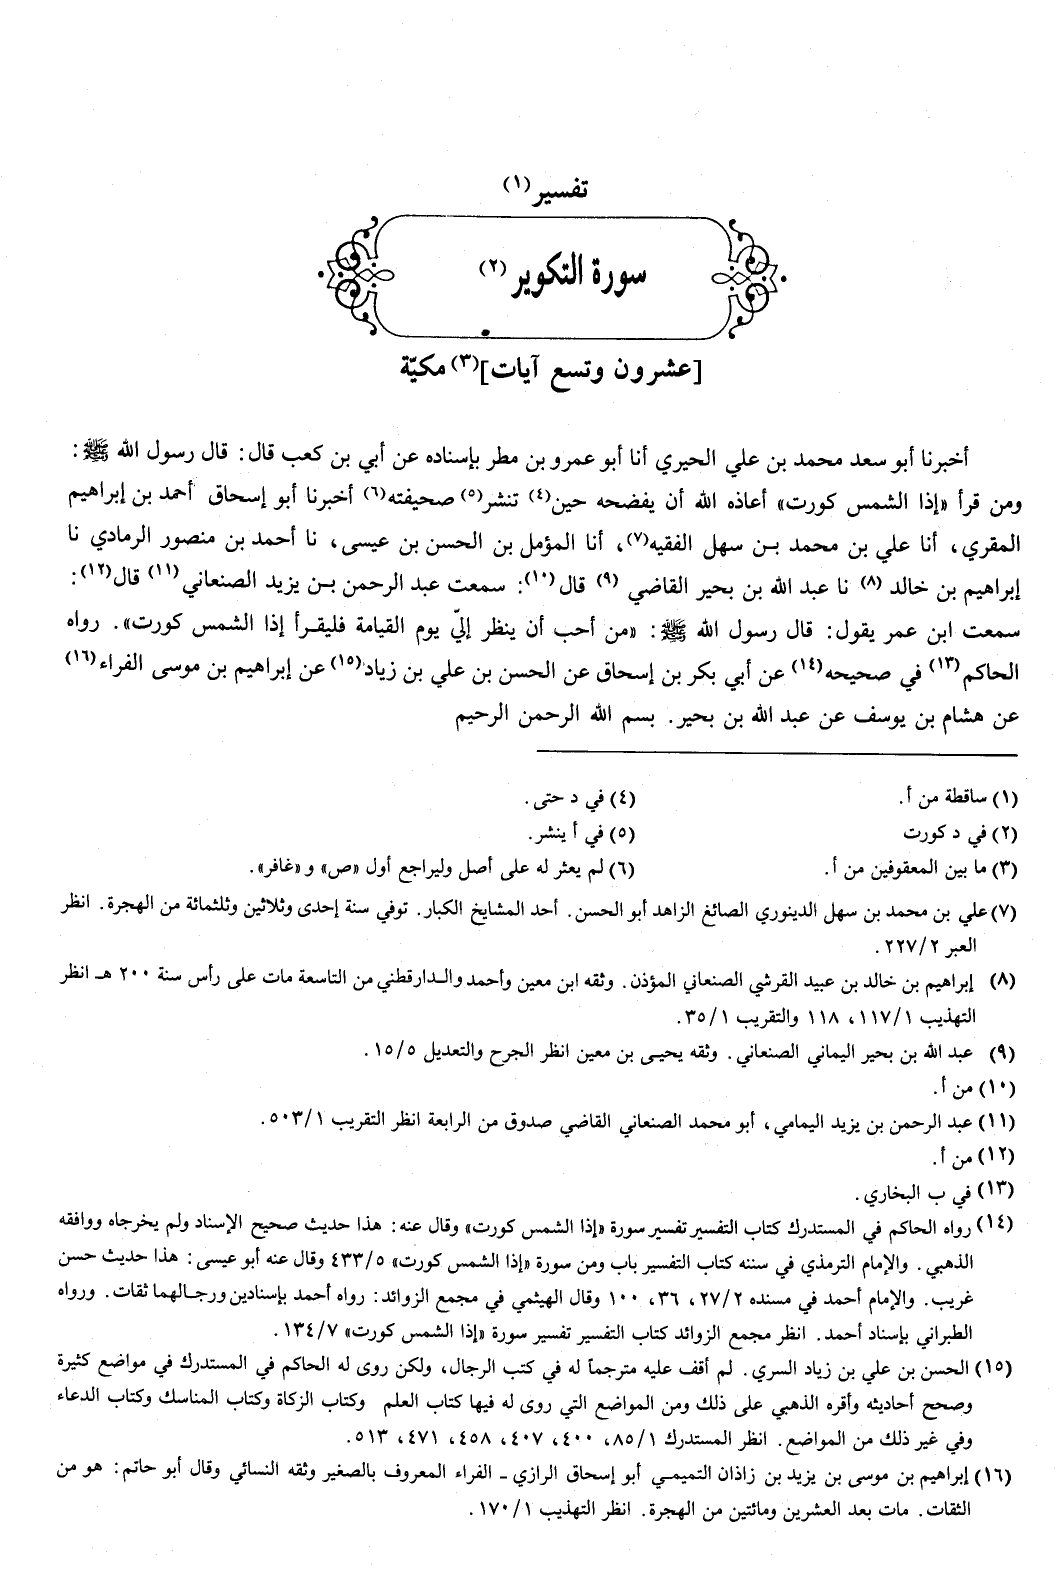 تفسير (١)
سورة التكوير (٢)
[عشرون وتسع آيات](٣) مكيّة
أخبرنا أبو سعد محمد بن علي الحيري أنا أبو عمرو بن مطر بإسناده عن أبي بن كعب قال: قال رسول الله ﷺ:
ومن قرأ «إذا الشمس كورت» أعاذه الله أن يفضحه حين(٤) تنشر(٥) صحيفته(٦) أخبرنا أبو إسحاق أحمد بن إبراهيم
المقري، أنا علي بن محمد بن سهل الفقيه(٧)، أنا المؤمل بن الحسن بن عيسى، نا أحمد بن منصور الرمادي نا
إبراهيم بن خالد (٨) نا عبد الله بن بحير القاضي (٩) قال(١٠): سمعت عبد الرحمن بن يزيد الصنعاني(١١) قال(١٢):
سمعت ابن عمر يقول: قال رسول الله ﷺ: «من أحب أن ينظر إليّ يوم القيامة فليقرأ إذا الشمس كورت». رواه
الحاكم(١٣) في صحيحه(١٤) عن أبي بكر بن إسحاق عن الحسن بن علي بن زياد(١٥) عن إبراهيم بن موسى الفراء(١٦)
عن هشام بن يوسف عن عبد الله بن بحير. بسم الله الرحمن الرحيم
(١) ساقطة من أ.
(٢) في د كورت
(٣) ما بين المعقوفين من أ.
(٤) في د حتى.
(٥) في أ ينشر.
(٦) لم يعثر له على أصل وليراجع أول «ص» و «غافر».
(٧) علي بن محمد بن سهل الدينوري الصائغ الزاهد أبو الحسن. أحد المشايخ الكبار. توفي سنة إحدى وثلاثين وثلثمائة من الهجرة. انظر
العبر ٢/٢٢٧.
(٨) إبراهيم بن خالد بن عبيد القرشي الصنعاني المؤذن. وثقه ابن معين وأحمد والدارقطني من التاسعة مات على رأس سنة ٢٠٠ هـ انظر
التهذيب ١/١١٧، ١١٨ والتقريب ١/٣٥.
(٩) عبد الله بن بحير اليماني الصنعاني. وثقه يحيى بن معين انظر الجرح والتعديل ٥/١٥.
(١٠) من أ.
(١١) عبد الرحمن بن يزيد اليمامي، أبو محمد الصنعاني القاضي صدوق من الرابعة انظر التقريب ١/٥٠٣.
(١٢) من أ.
(١٣) في ب البخاري.
(١٤) رواه الحاكم في المستدرك كتاب التفسير تفسير سورة «إذا الشمس كورت» وقال عنه: هذا حديث صحيح الإسناد ولم يخرجاه ووافقه
الذهبي. والإمام الترمذي في سننه كتاب التفسير باب ومن سورة «إذا الشمس كورت» ٥/٤٣٣ وقال عنه أبو عيسى: هذا حديث حسن
غريب. والإمام أحمد في مسنده ٢/٢٧، ٣٦، ١٠٠ وقال الهيثمي في مجمع الزوائد: رواه أحمد بإسنادين ورجالهما ثقات. ورواه
الطبراني بإسناد أحمد. انظر مجمع الزوائد كتاب التفسير تفسير سورة «إذا الشمس كورت» ٧/١٣٤.
(١٥) الحسن بن علي بن زياد السري. لم أقف عليه مترجماً له في كتب الرجال، ولكن روى له الحاكم في المستدرك في مواضع كثيرة
وصحح أحاديثه وأقره الذهبي على ذلك ومن المواضع التي روى له فيها كتاب العلم وكتاب الزكاة وكتاب المناسك وكتاب الدعاء
وفي غير ذلك من المواضع. انظر المستدرك ١/٨٥، ٤٠٠، ٤٠٧، ٤٥٨، ٤٧١، ٥١٣.
(١٦) إبراهيم بن موسى بن يزيد بن زاذان التميمي أبو إسحاق الرازي - الفراء المعروف بالصغير وثقه النسائي وقال أبو حاتم: هو من
الثقات. مات بعد العشرين ومائتين من الهجرة. انظر التهذيب ١/١٧٠.